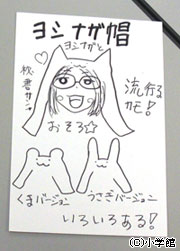 ヨシナガ帽
ヨシナガと
秘書サン
流行る
カモ!
おそろ☆
くまバージョン
うさぎバージョン
いろいろある!
©小学館